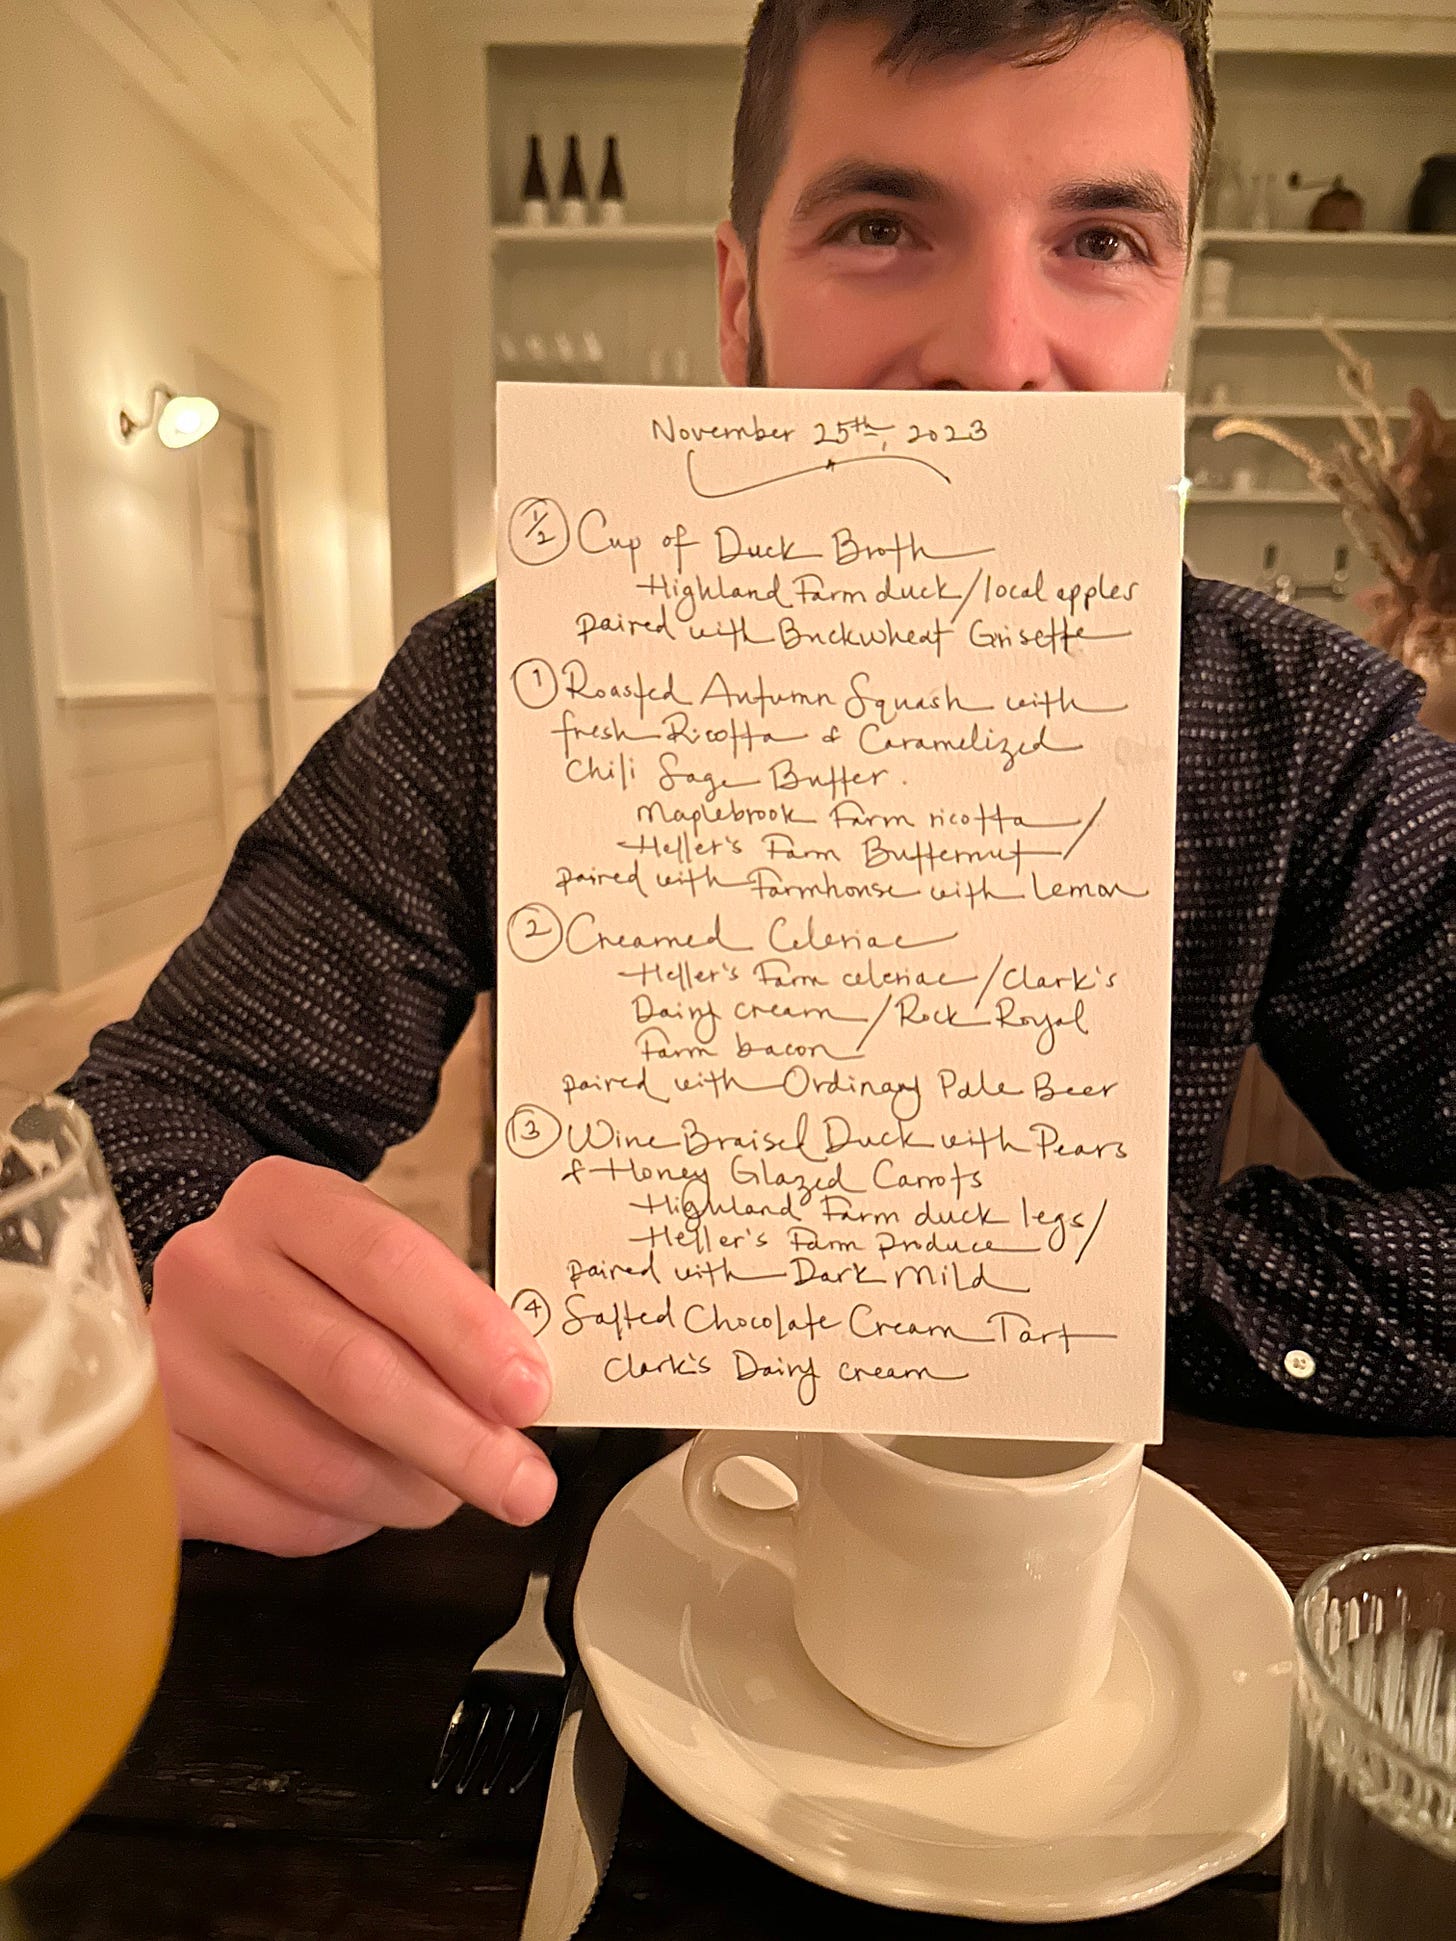 November 25th, 2023
1/2 Cup of Duck Broth
Highland Farm duck/local apples
paired with Buckwheat Grisette
1 Roasted Autumn Squash with
fresh Ricotta & Caramelized
Chili Sage Butter.
Maplebrook Farm ricotta/
Heller's Farm Butternut/
paired with Farmhouse with Lemon
2 Creamed Celeriac
Heller's Farm celeriac/Clark's
Dairy cream/Rock Royal
Farm bacon
paired with Ordinary Pale Beer
3 Wine Braised Duck with Pears
& Honey Glazed Carrots
Highland Farm duck legs/
Heller's Farm produce/
paired with Dark Mild
4 Salted Chocolate Cream Tart
Clark's Dairy cream